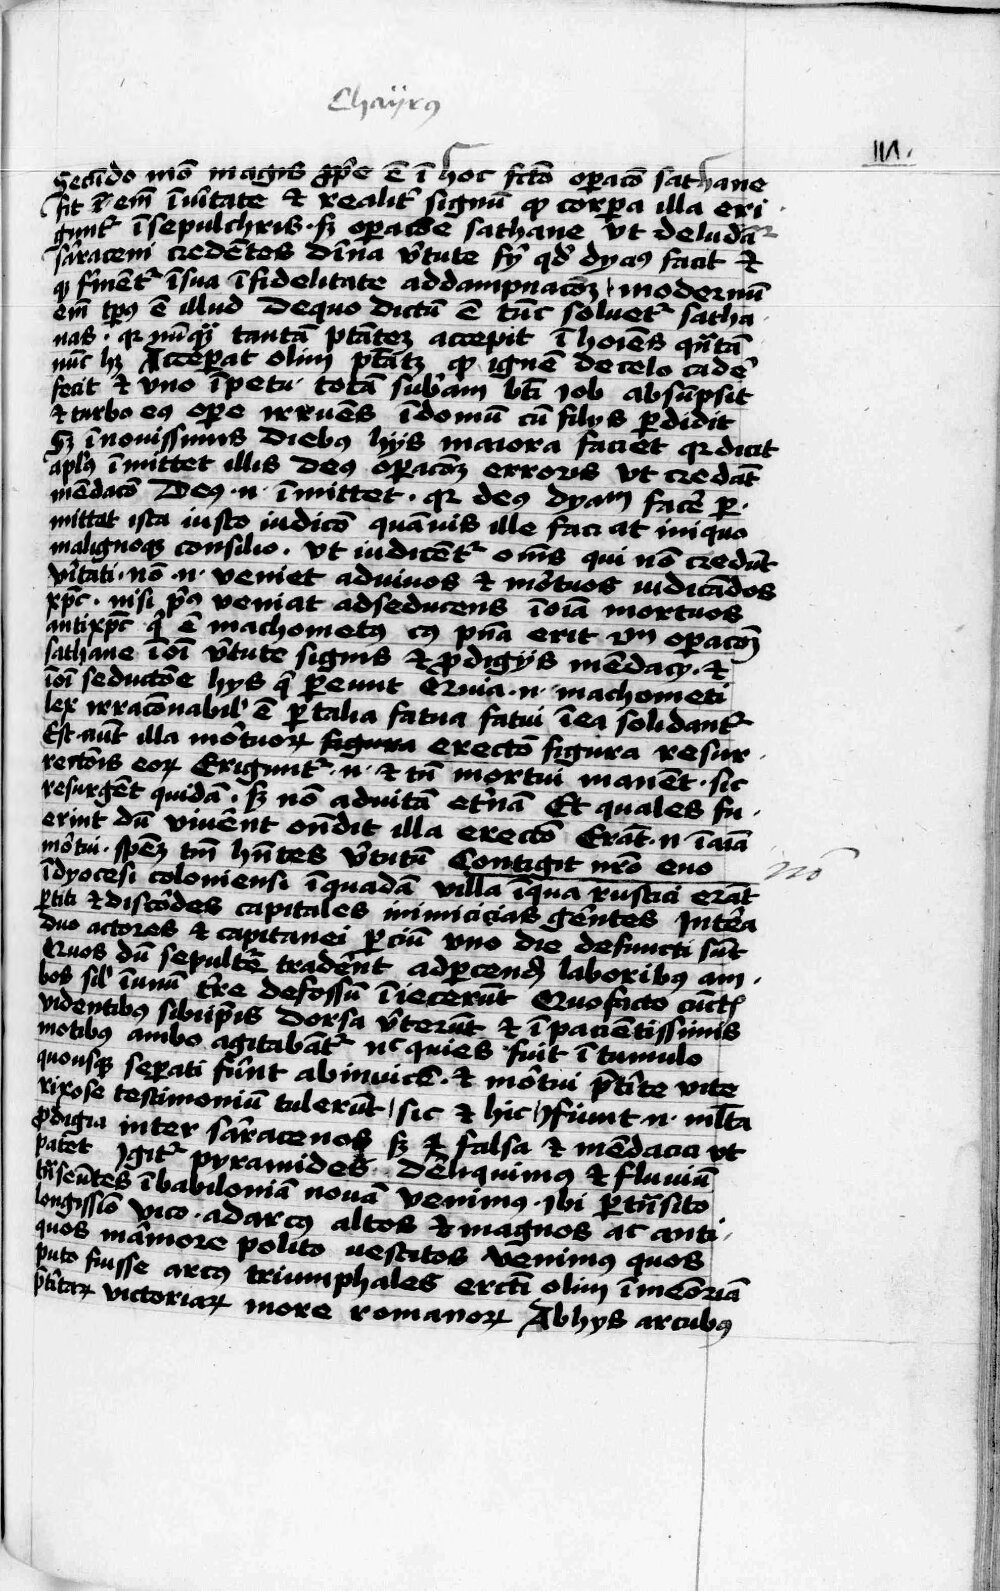 Chayrꝰ
III.
Secūdo mō magis ꝓp̄e ē ī hoc fcō oꝑacō sathane
fit em̄ īu̾itate et realit̾ signū qꝫ corꝑa illa eri
gunt̾ īsepulchris. sꝫ oꝑacōe sathane vt deludāt̾
sarraceni credētes dīna v̾tute fy̾ qd̾ dyaꝰ facit et
qꝫ firmēt̾ īsua īfidelitate addampnacōꝫ modernū
em̄ tp̄ꝰ ē illud Dequo dictū ē tūc soluet̾ satha
nas. qꝛ nūqꝫ tantā ptāteꝫ accepit ī hoīes qn̄tā
nūc hꝫ Acceperat olim ptātꝫ qꝫ ignē decelo cade̾
fecit et vno īpetu totā sub̾am btī Job absūpsit
et turbo eꝰ oꝑe irruēs īdomū cū filys ꝑdidit
Sꝫ īnouissimis diebꝰ hijs maiora faciet qꝛ dicit
apl̾ꝰ īmittet illis deꝰ oꝑacōꝫ erroris vt credāt
mēdacō Deꝰ .n. īmittet. qꝛ deꝰ dyām face̾ ꝑ
mittat ista iusto iudicō quāuis ille faciat iniquo
malignoqꝫ consilio. vt iudicēt̾ om̄s qui nō credūt
v̾itati. nō .n. veniet aduiuos et mortuos iudicādos
xp̄c. nisi pͥꝰ veniat adseducens īoīa mortuos
antixp̄c qͥ ē machometꝰ cꝰ pn̄a erit vn̄ oꝑacōꝫ
sathane īoī v̾tute signis et ꝓdigijs mēdacy. et
īoī seductōe hys qͥ ꝑeunt Quia .n. machometi
lex irracōnabil̾ ē ꝑ talia fatua fatui īea solidant̾
Est aūt illa mortuoꝝ figura erectō figura resur
rectōis eoꝝ Erigunt̾ .n. et tn̄ mortui manēt. sic
resurgēt quidā. sꝫ nō aduitā et̾nā Et quales fu
erint dū viuēnt on̄dit illa erectō Erāt .n. īaīa
mortui. spēꝫ tm̄ hn̄tes v̾tutū Contigit nr̄o euo
īdyocesi coloniensi īquadā villa īqua rustici erāt
ꝑtiti et discordes capitales inimicicias gerētes Intēa
duo actores et capitanei ꝑciū vno die defuncti sūt
Quos dū sepultēr tradēnt adꝑcend̾ laboribꝰ am
bos sil̾ īunū t̾re defossū īiecerūt Quofacto cūctꝭ
videntibꝰ sibiip̄is dorsa v̾terūt et īpacientissimis
motibꝰ ambo agitabāt̾ nᶜ quies fuit ī tumulo
quousqꝫ seꝑati fūnt abinuicē. et mortui pt̄ite vite
rixose testimoniū tulerūt sic et hic fiūnt .n. ml̄ta
ꝓdigia inter sarracenos sꝫ falsa et mēdacia vt
patet Igit̾ pyramides deliquimꝰ et fluuiū
tn̄seūtes ībabiloniā nouā venimꝰ. ibi ꝑtn̄sito
longissīo vico. adarcꝰ altos et magnos ac anti
quos mārmore polito vestitos venimꝰ quos
puto fuisse arcꝰ triumphales ercti olim īmeōriā
pt̄itaꝝ victoriaꝝ more romanoꝝ Abhys arcubꝰ